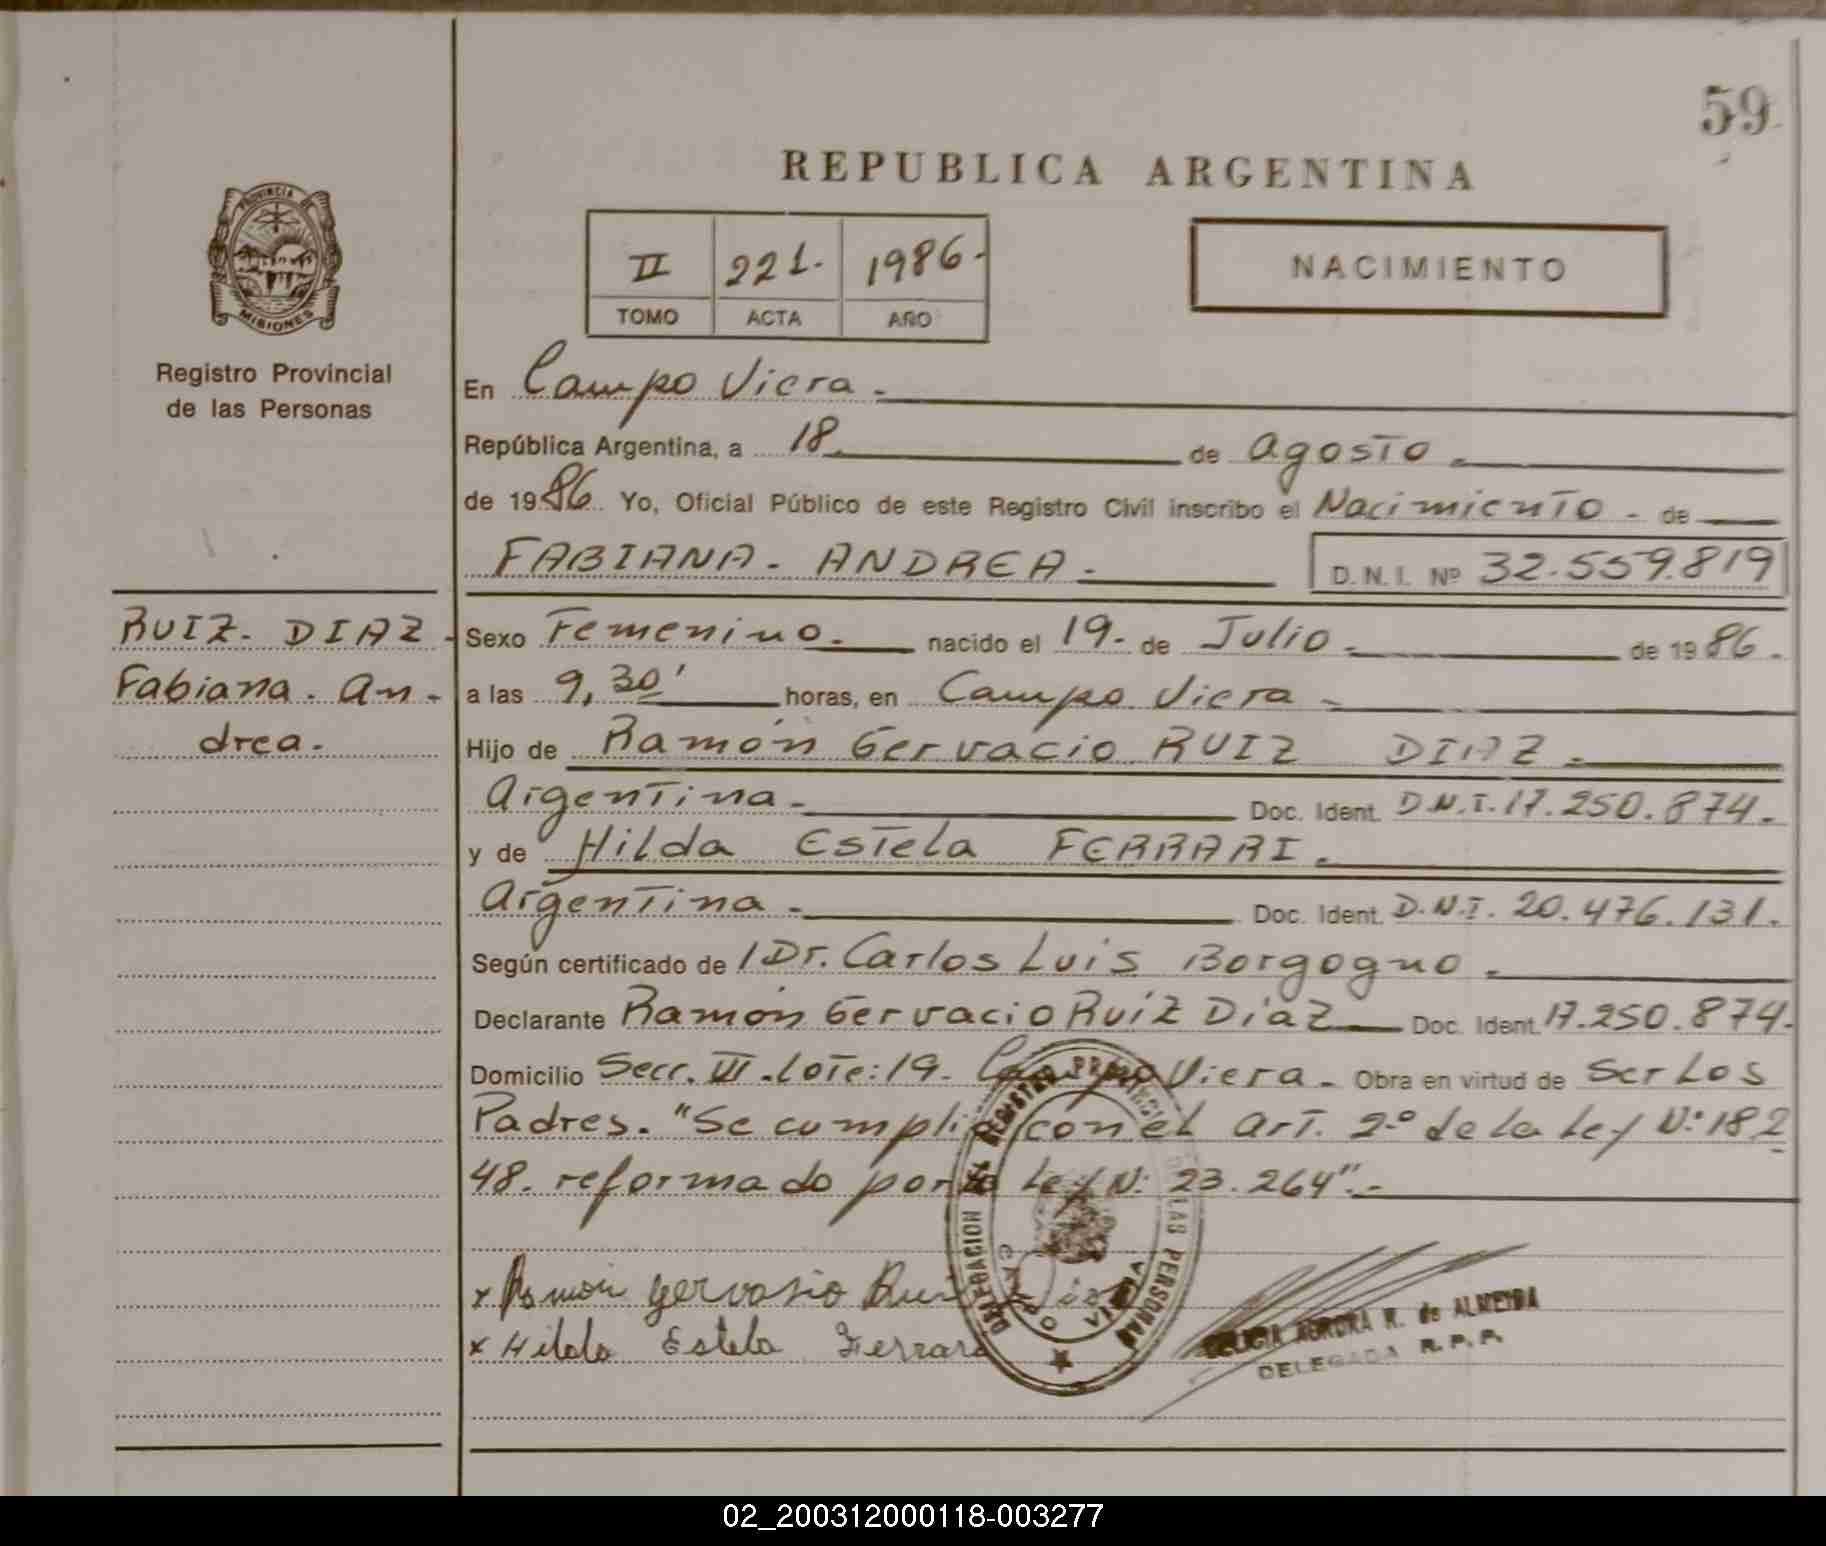 59
REPUBLICA ARGENTINA
PROVINCIA DE
MISIONES
Registro Provincial
de las Personas
II 221. 1986.-
TOMO ACTA AÑO
NACIMIENTO
En Campo Viera.-
República Argentina, a 18 de Agosto.
de 1986. Yo, Oficial Público de este Registro Civil inscribo el Nacimiento - de
FABIANA. ANDREA.- D.N.I. Nº 32.559.819
RUIZ. DIAZ.
Fabiana. An-
drea.
Sexo Femenino.- nacido el 19.- de Julio.- de 1986.-
a las 9,30' horas, en Campo Viera.-
Hijo de Ramón Gervacio RUIZ DIAZ.-
Argentina.- Doc. Ident. D.N.I. 17.250.874.-
y de Hilda Estela FERRARI.-
Argentina.- Doc. Ident. D.N.I. 20.476.131.-
Según certificado de / Dr. Carlos Luis Borgogno.-
Declarante Ramón Gervacio Ruíz Díaz Doc. Ident. 17.250.874.
Domicilio Secc. III. Lote: 19. Campo Viera.- Obra en virtud de Ser Los
Padres. "Se cumplió con el Art. 2º de la Ley N: 182
48. reformado por la Ley N: 23.264".-
x Ramón Gervasio Rui
x Hilda Estela Ferrari
DELEGACION DEL REGISTRO PROVINCIAL DE LAS PERSONAS
CAMPO VIERA
AURORA R. de ALMEIDA
DELEGADA R.P.P.
02_200312000118-003277